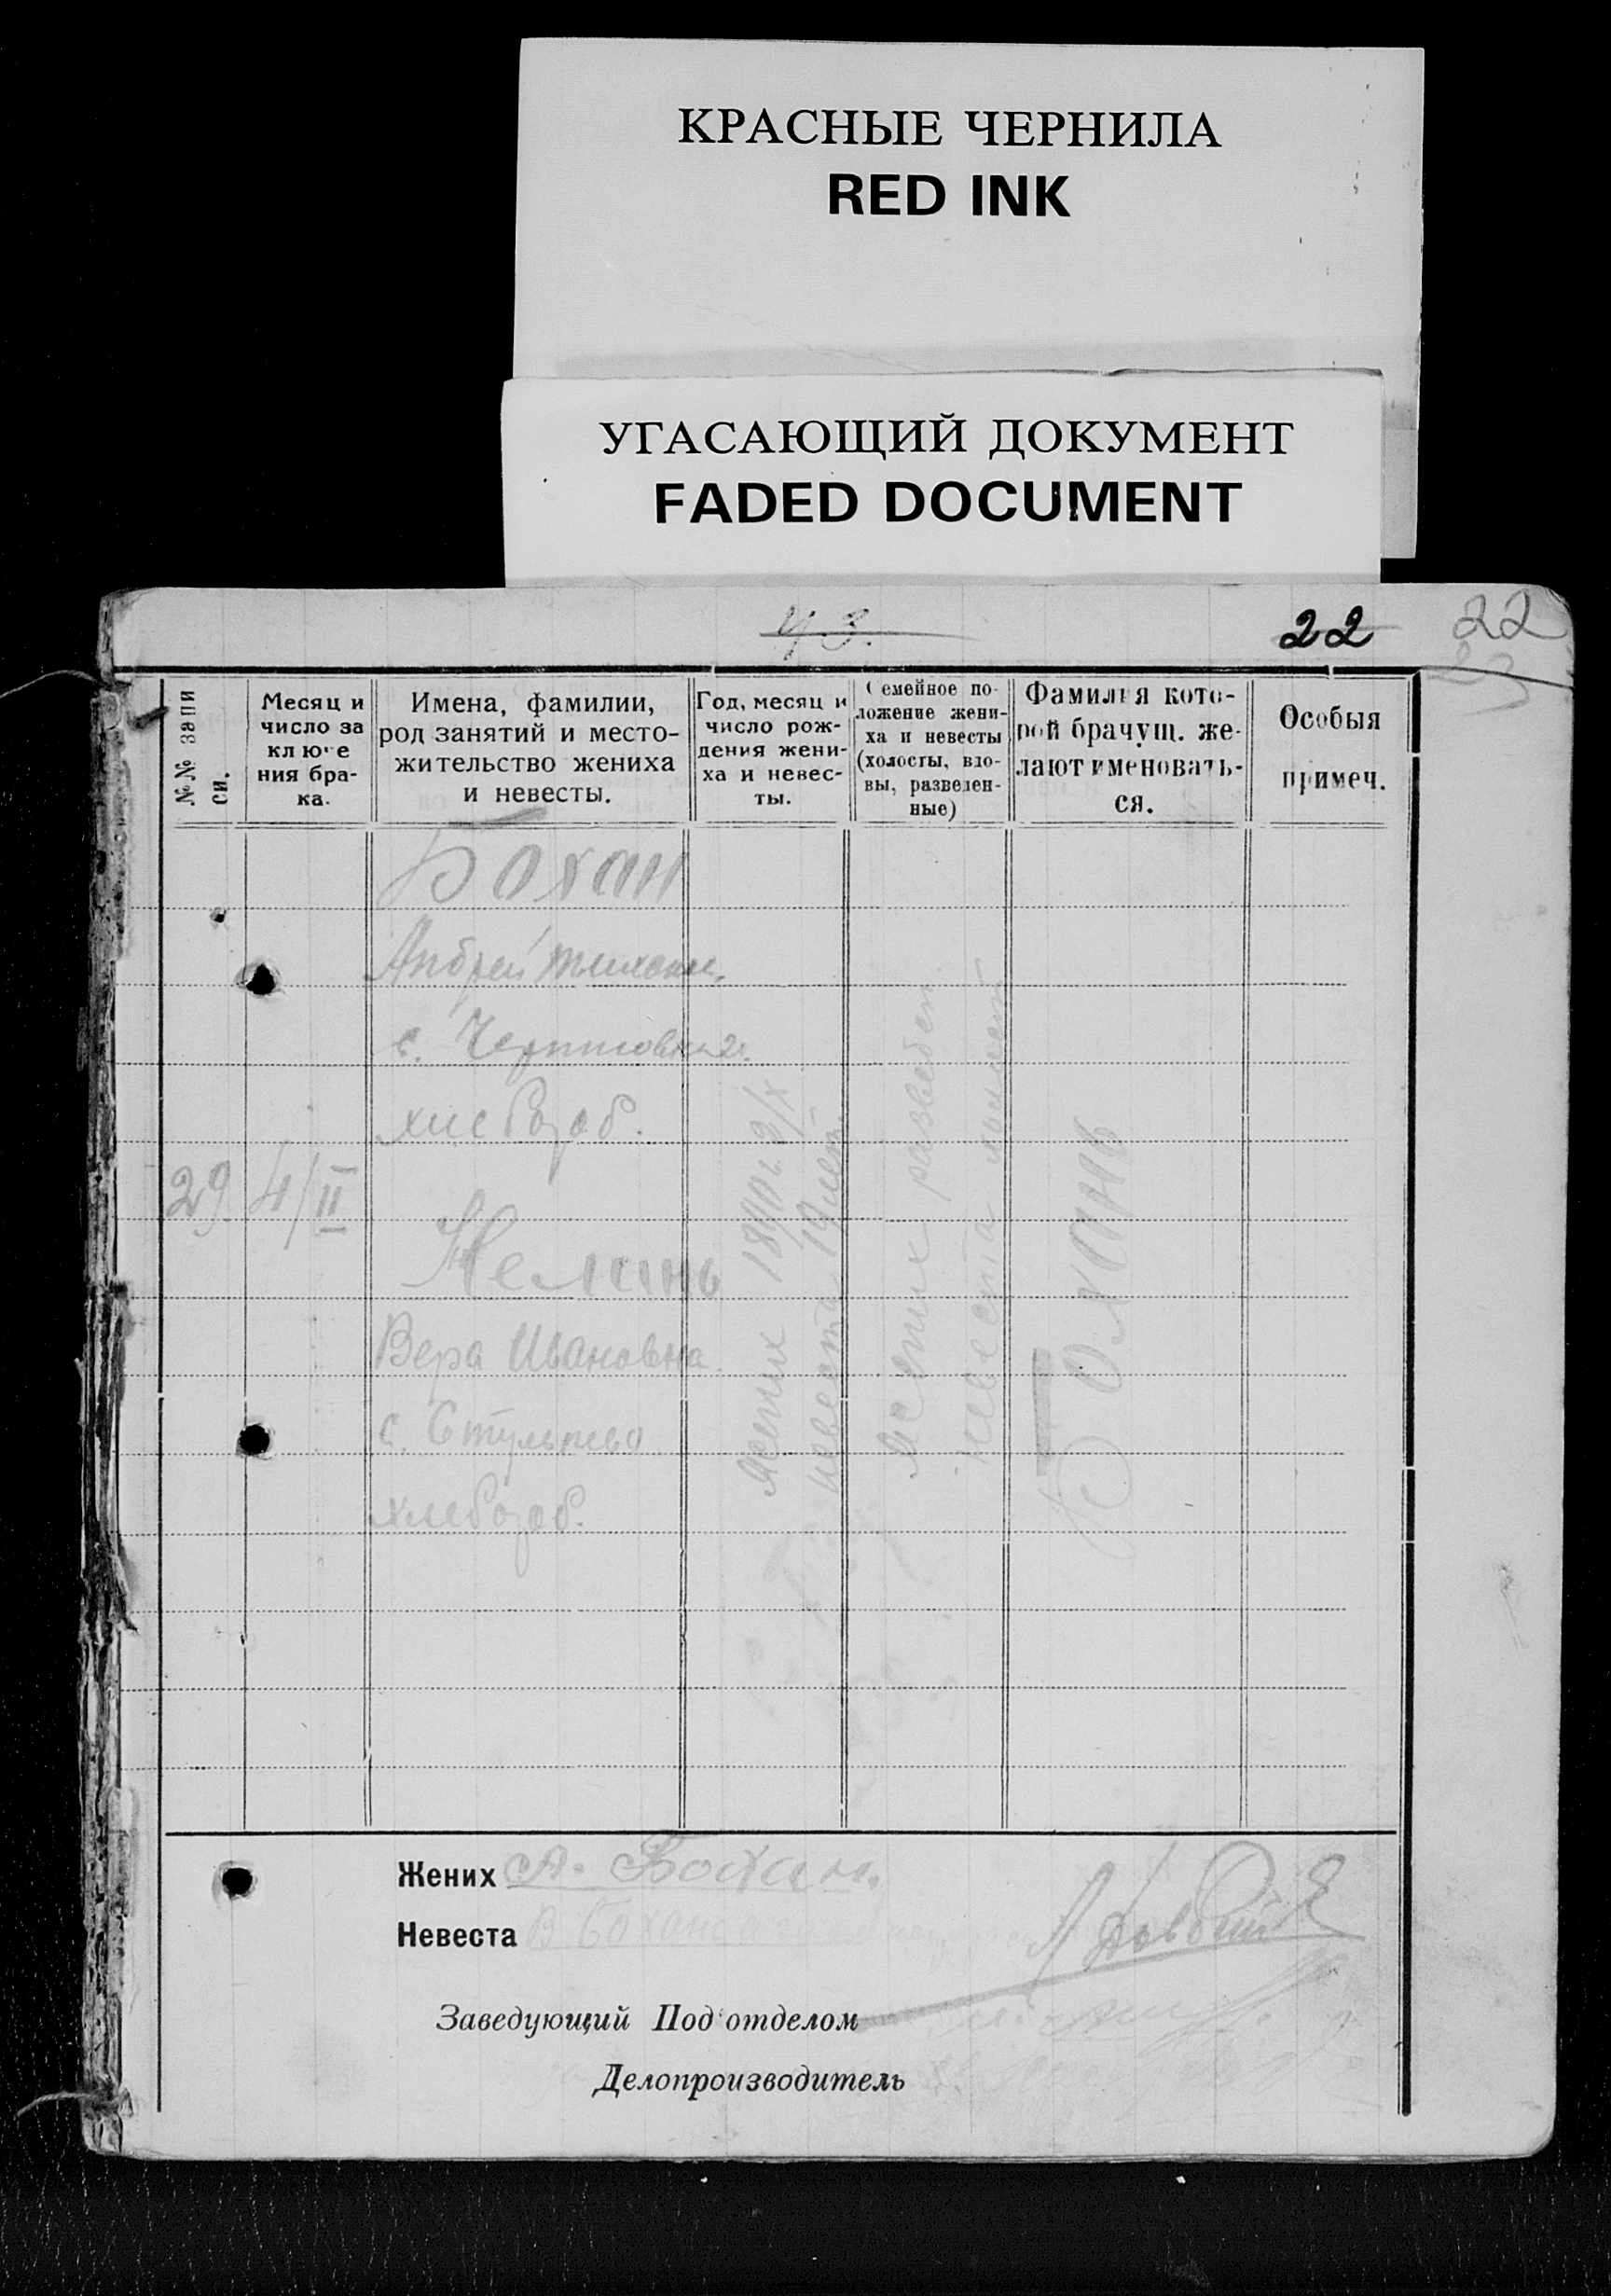 КРАСНЫЕ ЧЕРНИЛА
RED INK
УГАСАЮЩИЙ ДОКУМЕНТ
FADED DOCUMENT
43.
22
22
№№ запи
си.
Месяц и
число за
клю е
ния бра-
ка.
Имена, фамилии,
род занятий и место-
жительство жениха
и невесты.
Год, месяц и
число рож-
дения жени-
ха и невес-
ты.
Семейное по-
ложение жени-
ха и невесты
(холосты, вдо-
вы, разведен-
ные)
Фамилия кото-
рой брачущ. же-
лают именовать-
ся.
Особыя
примеч.
Бохан
Андрей Тихон.
с.
хлебороб.
29. 4/II
Вера Ивановна
с.
хлебороб.
жених
невеста 19 лет
Жених разведен
невеста
Бохань
Жених А. Бохан.
Невеста В Бохан
Заведующий Под отделом
Делопроизводитель